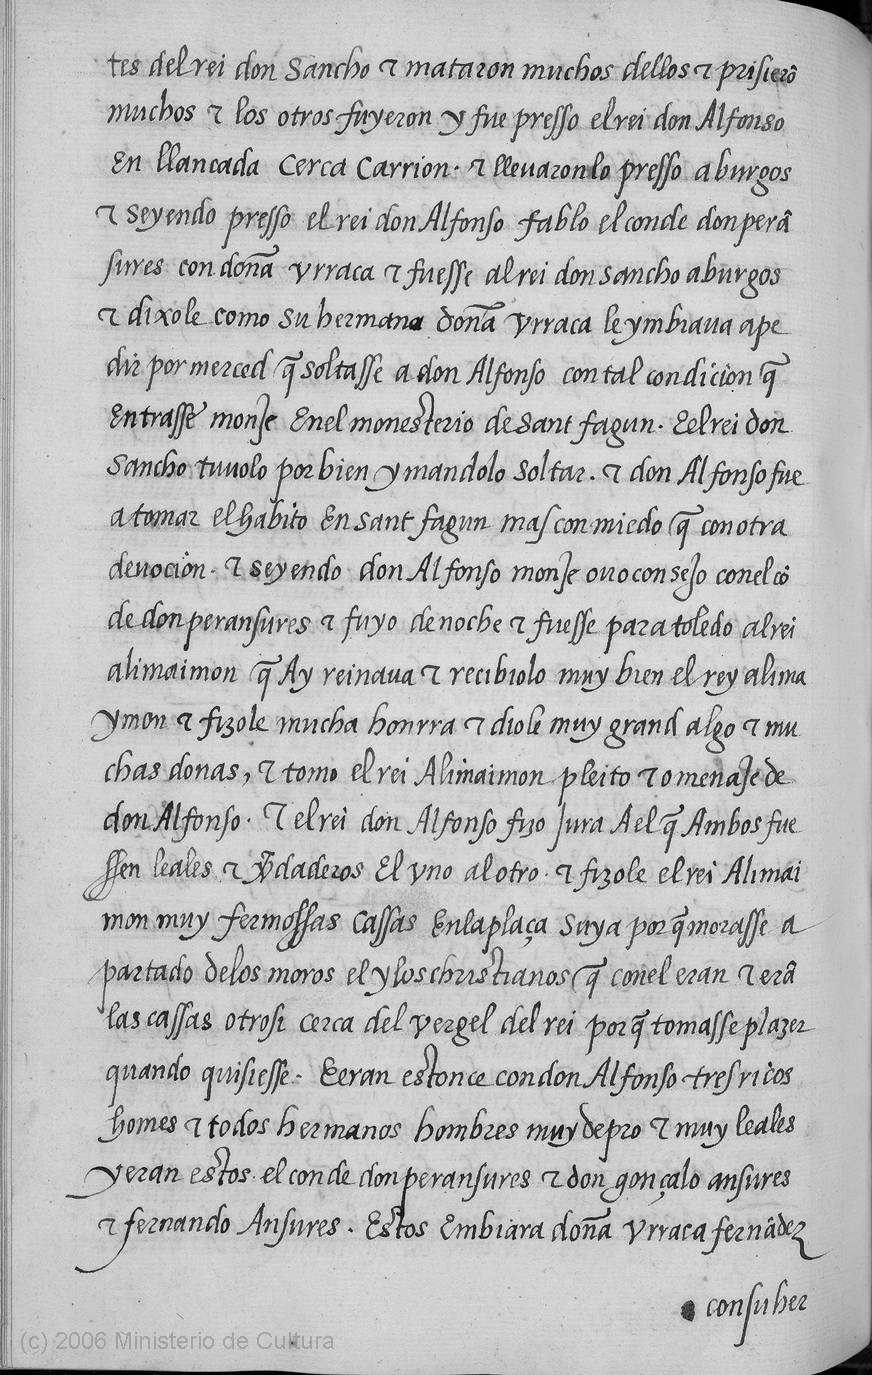 tes del rei don Sancho ⁊ mataron muchos dellos ⁊ prisierõ
muchos ⁊ los otros fuyeron y fue presso el rei don Alfonso
En llancada Cerca Carrion. ⁊ llevaronlo presso a burgos
⁊ seyendo presso el rei don Alfonso fablo el conde don perã
sures con doña Vrraca ⁊ fuesse al rei don sancho a burgos
⁊ dixole como su hermana doña Vrraca le ymbiaua a pe
dir por merced q̃ soltasse a don Alfonso con tal condicion q̃
Entrasse monje En el monesterio de Sant fagun. E el rei don
Sancho tuuolo por bien y mandolo soltar. ⁊ don Alfonso fue
a tomar el habito En sant fagun mas con miedo q̃ con otra
deuocion. ⁊ seyendo don Alfonso monje ouo consejo con el cõ
de don peransures ⁊ fuyo de noche ⁊ fuesse para toledo al rei
alimaimon q̃ Ay reinaua ⁊ recibiolo muy bien el rey alima
ymon ⁊ fizole mucha honrra ⁊ diole muy grand algo ⁊ mu
chas donas, ⁊ tomo el rei Alimaimon pleito ⁊ omenaje de
don Alfonso. ⁊ el rei don Alfonso fizo Jura A el q̃ Ambos fue
ssen leales ⁊ ṽdaderos El vno al otro. ⁊ fizole el rei Alimai
mon muy fermossas Cassas En la plaça suya por q̃ morasse a
partado de los moros el y los christianos q̃ con el eran ⁊ erã
las cassas otrosi cerca del vergel del rei por q̃ tomasse plazer
quando quisiesse. E eran estonce con don Alfonso tres ricos
homes ⁊ todos hermanos hombres muy de pro ⁊ muy leales
y eran estos. el conde don peransures ⁊ don gonçalo ansures
⁊ fernando Ansures. Estos Embiara doña Vrraca fernãdez
con su her
(c) 2006 Ministerio de Cultura